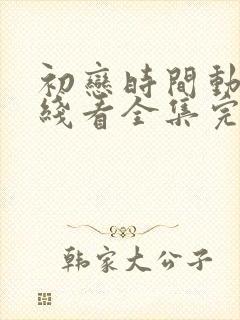 初戀時間動
綫看全集完
韩家大公子